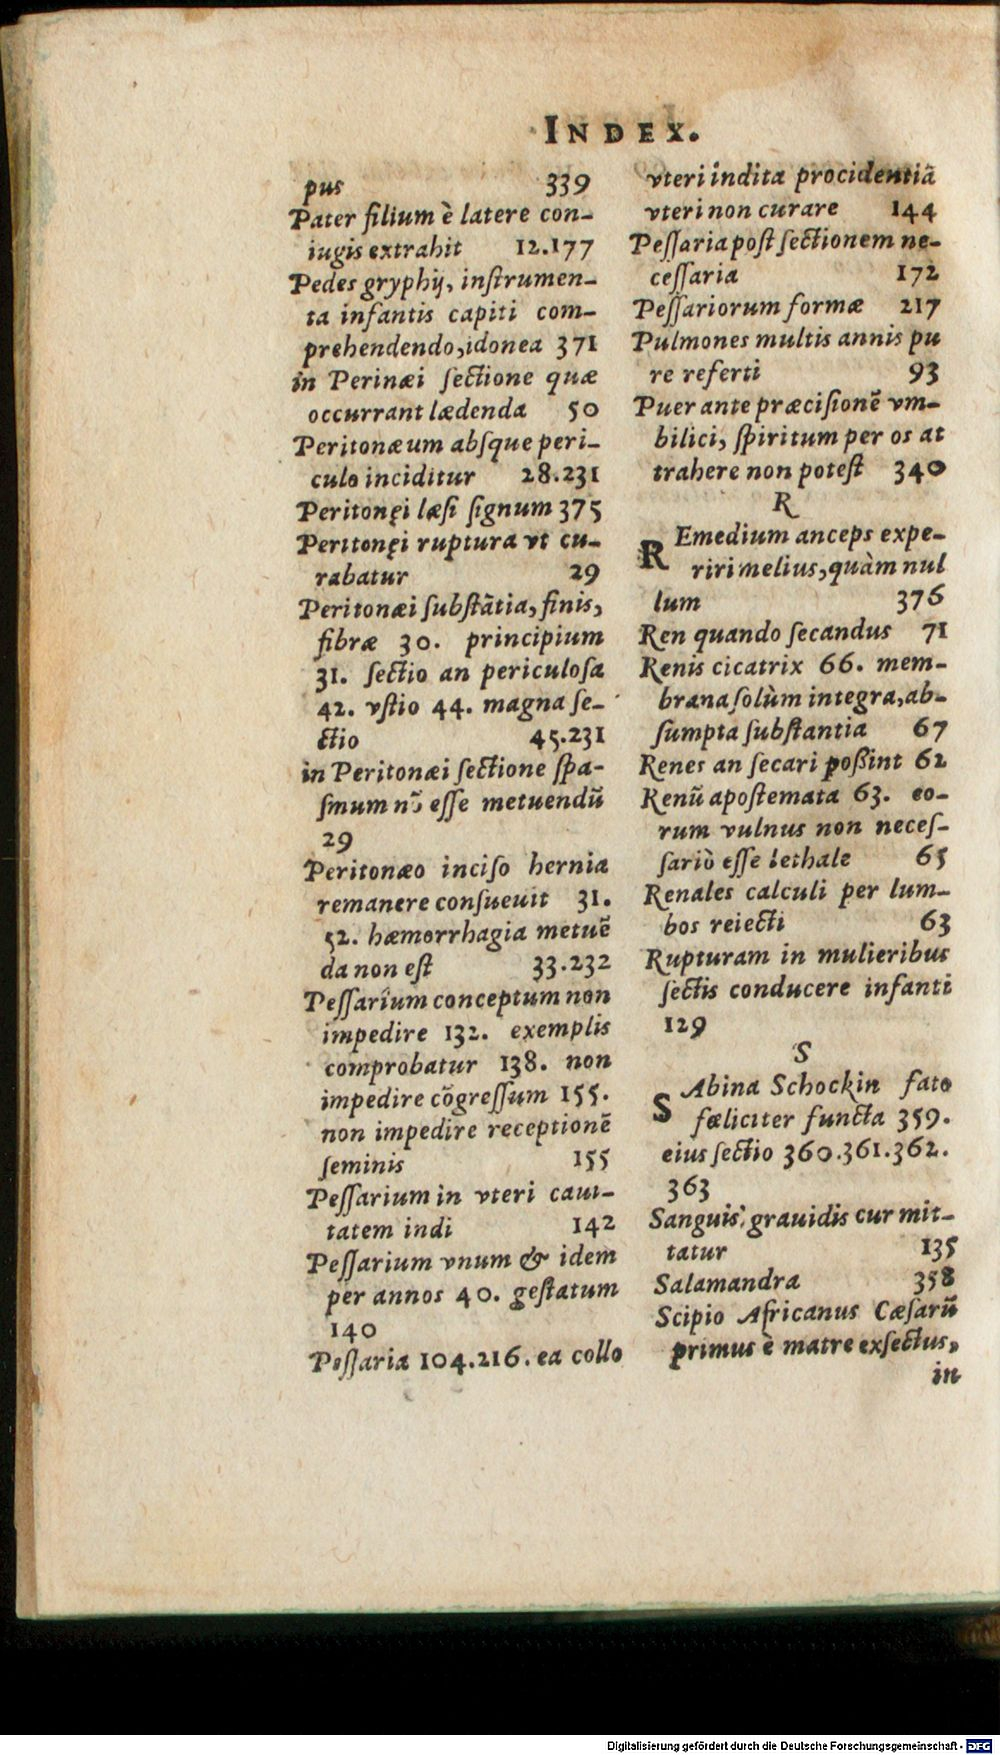 INDEX.
pus 339
Pater filium è latere con-
iugis extrahit 12.177
Pedes gryphij, inſtrumen-
ta infantis capiti com-
prehendendo,idonea 371
in Perinæi ſectione quæ
occurrant lædenda 50
Peritonæum abſque peri-
culo inciditur 28.231
Peritonęi læſi ſignum 375
Peritonęi ruptura vt cu-
rabatur 29
Peritonæi ſubſtãtia, finis,
fibræ 30. principium
31. ſectio an periculoſa
42. vſtio 44. magna ſe-
ctio 45.231
in Peritonæi ſectione ſpa-
ſmum nõ eſſe metuendũ
29
Peritonæo inciſo hernia
remanere conſueuit 31.
52. hæmorrhagia metuẽ
da non eſt 33.232
Peſſarium conceptum non
impedire 132. exemplis
comprobatur 138. non
impedire cõgreſſum 155.
non impedire receptionẽ
ſeminis 155
Peſſarium in vteri caui-
tatem indi 142
Peſſarium vnum & idem
per annos 40. geſtatum
140
Peſſaria 104.216. ea collo
vteri indita procidentiã
vteri non curare 144
Peſſaria poſt ſectionem ne-
ceſſaria 172
Peſſariorum formæ 217
Pulmones multis annis pu
re referti 93
Puer ante præciſionẽ vm-
bilici, ſpiritum per os at
trahere non poteſt 340
R
REmedium anceps expe-
riri melius,quàm nul
lum 376
Ren quando ſecandus 71
Renis cicatrix 66. mem-
brana ſolùm integra,ab-
ſumpta ſubſtantia 67
Renes an ſecari poßint 62
Renũ apoſtemata 63. eo-
rum vulnus non neceſ-
ſariò eſſe lethale 65
Renales calculi per lum-
bos reiecti 63
Rupturam in mulieribus
ſectis conducere infanti
129
S
SAbina Schockin fato
fœliciter functa 359.
eius ſectio 360.361.362.
363
Sanguis grauidis cur mit-
tatur 135
Salamandra 358
Scipio Africanus Cæſarũ
primus è matre exſectus,
in
Digitalisierung gefördert durch die Deutsche Forschungsgemeinschaft - DFG